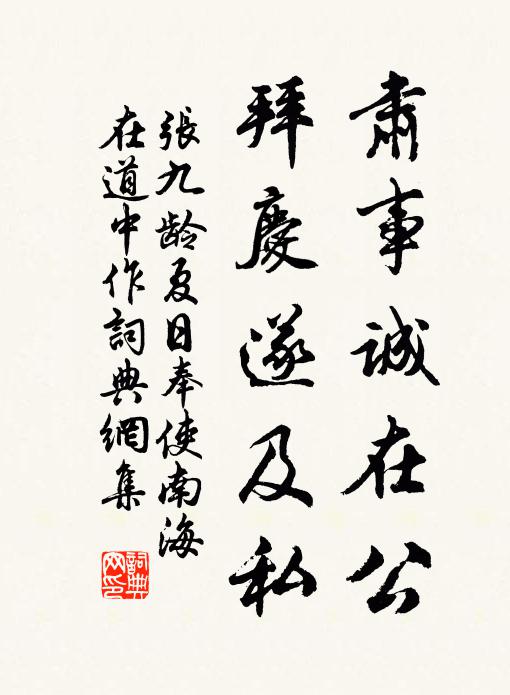 肅事誠在公
拜慶遂及私
張九齡夏日奉使南海
在道中作詞典網集
詞典網印